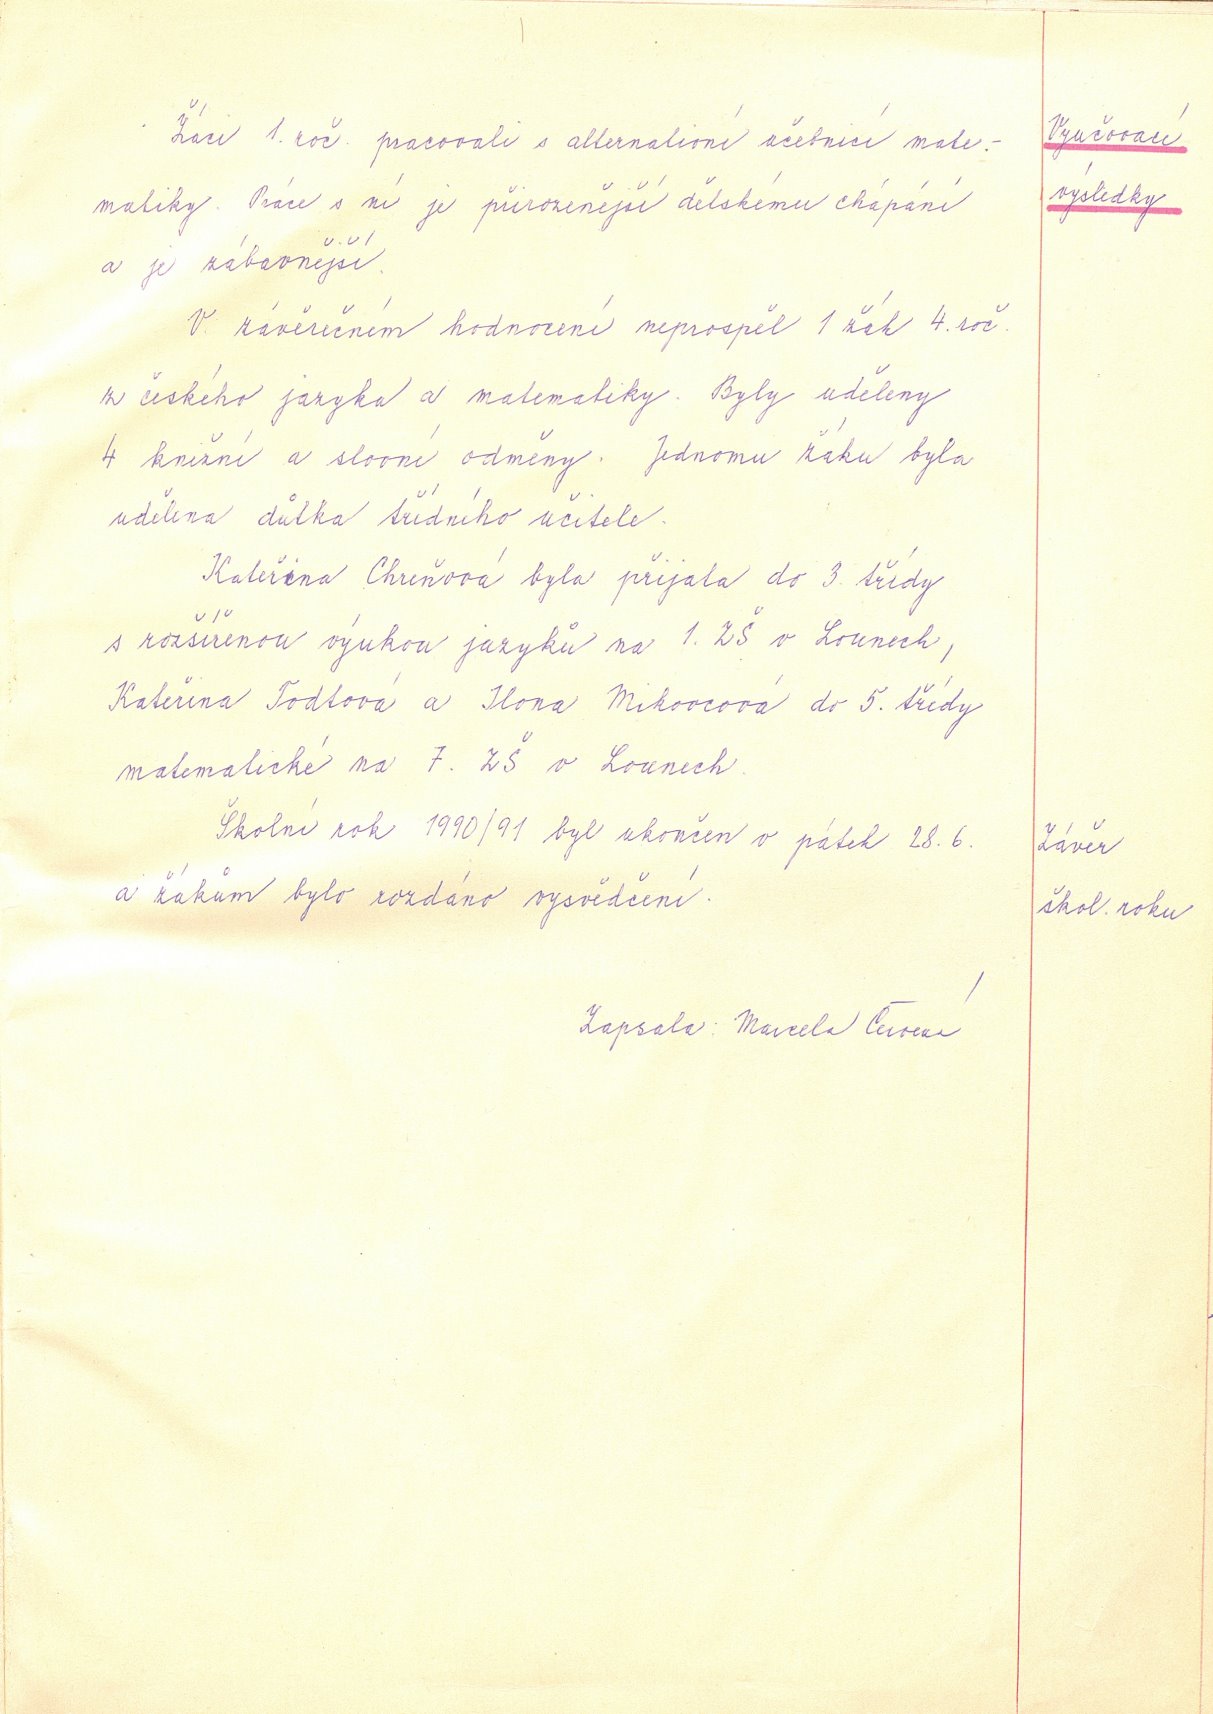 Žáci 1. roč. pracovali s alternativní učebnicí mate-
matiky. Práce s ní je přirozenější dětskému chápání
a je zábavnější.
V závěrečném hodnocení neprospěl 1 žák 4. roč.
z českého jazyka a matematiky. Byly uděleny
4 knižní a slovní odměny. Jednomu žáku byla
udělena důtka třídního učitele.
Kateřina Chreňová byla přijata do 3. třídy
s rozšířenou výukou jazyků na 1. ZŠ v Lounech,
Kateřina Todtová a Ilona Mikovcová do 5. třídy
matematické na 7. ZŠ v Lounech.
Školní rok 1990/91 byl ukončen v pátek 28. 6.
a žákům bylo rozdáno vysvědčení.
Zapsala: Marcela Červená
Vyučovací
výsledky
Závěr
škol. roku